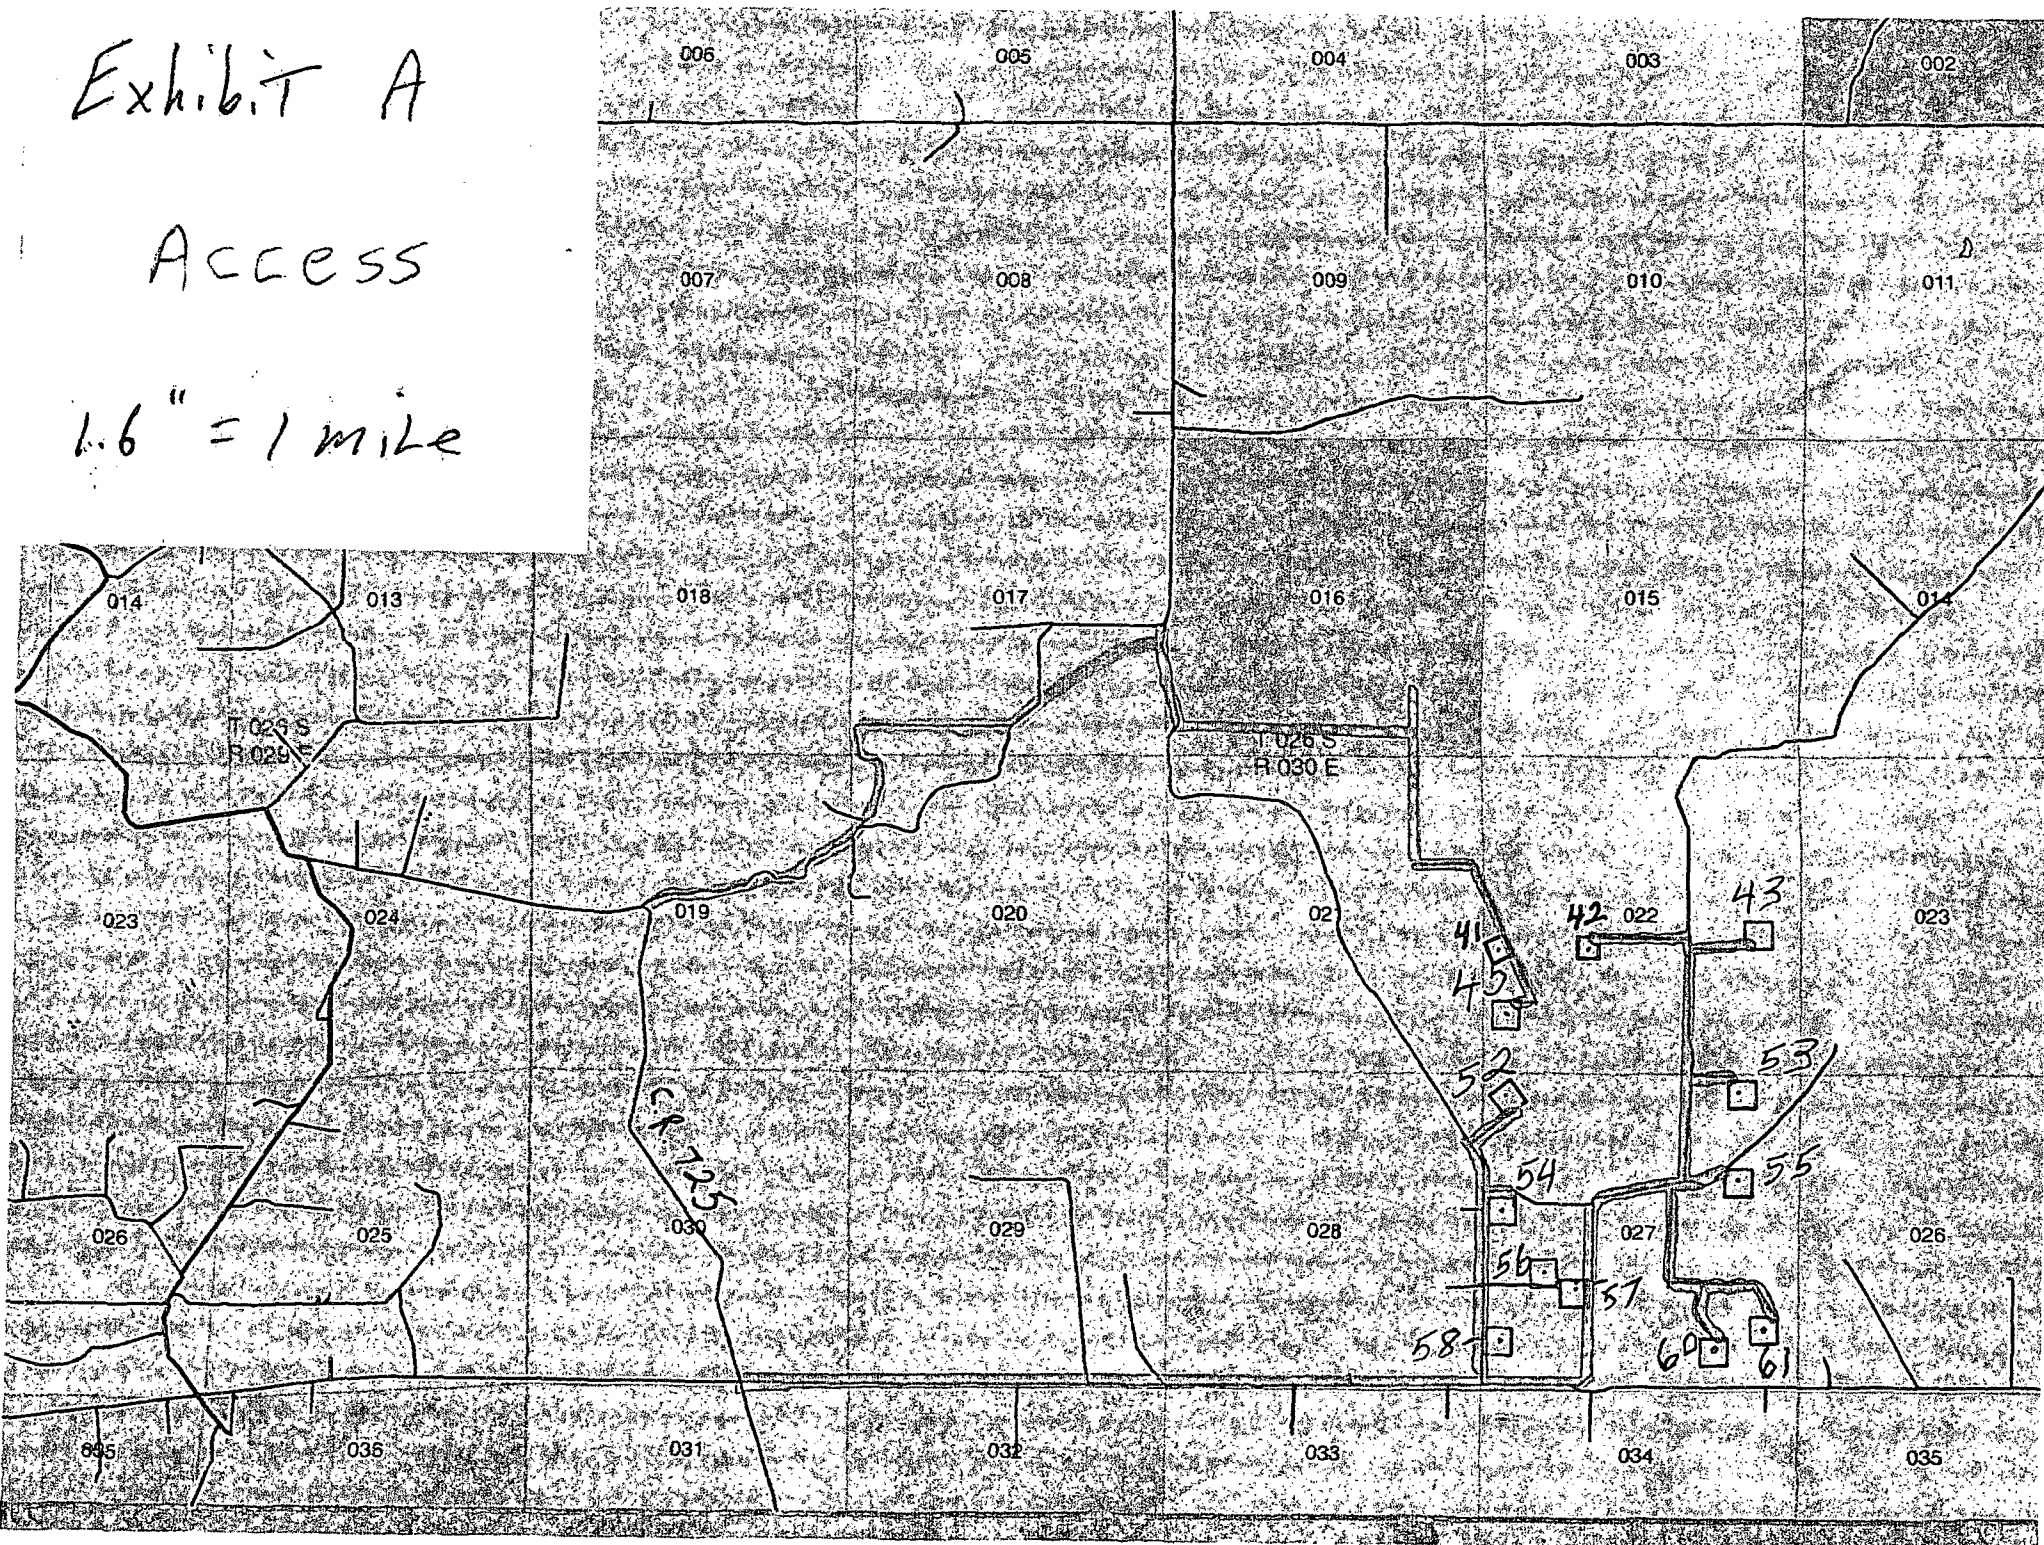 Exhibit A
Access
1.6" = 1 mile
006 005 004 003 002
007 008 009 010 011
014 013 018 017 016 015 014
T 026 S
R 029 E
T 026 S
R 030 E
023 024 019 020 021 022 023
41 42 43
45
52 53
C.R. 725
54 55
026 025 030 029 028 027 026
56 57
58 60 61
035 036 031 032 033 034 035